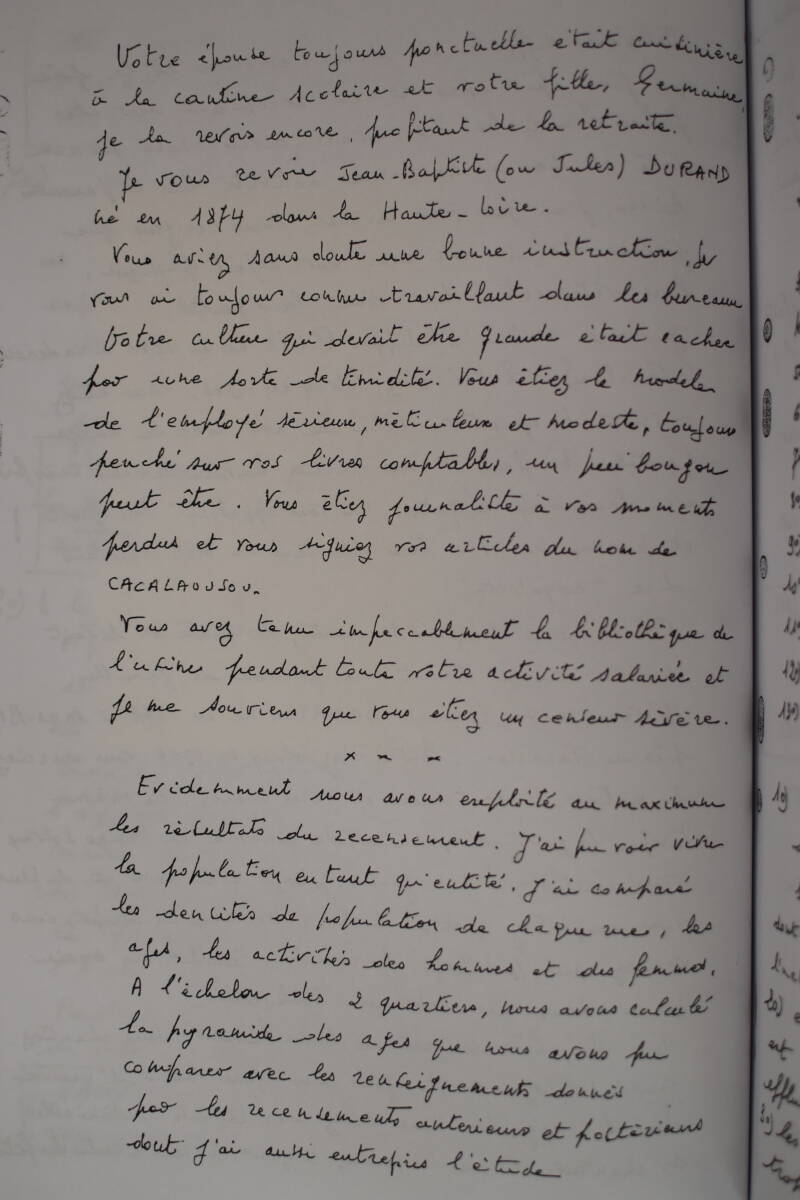 Votre épouse toujours ponctuelle était cuisinière
à la cantine scolaire et votre fille, Germaine,
je la revois encore, profitant de la retraite.
Je vous revois Jean-Baptiste (ou Jules) DURAND
né en 1874 dans la Haute-Loire.
Vous aviez sans doute une bonne instruction, je
vous ai toujours connu travaillant dans les bureaux
Votre culture qui devait être grande était cachée
par une sorte de timidité. Vous étiez le modèle
de l'employé sérieux, méticuleux et modeste, toujours
penché sur vos livres comptables, un peu bougon
peut être. Vous étiez journaliste à vos moments
perdus et vous signiez vos articles du nom de
CACALAOUSOU.
Vous avez tenu impeccablement la bibliothèque de
l'usine pendant toute votre activité salariée et
je me souviens que vous étiez un censeur sévère.
x - -
Evidemment nous avons exploité au maximum
les résultats du recensement. J'ai pu voir vivre
la population en tant qu'entité. J'ai comparé
les dencités de population de chaque rue, les
ages, les activités des hommes et des femmes.
A l'échelon des 2 quartiers, nous avons calculé
la pyramide des ages que nous avons pu
comparer avec les renseignements donnés
par les recensements antérieurs et postérieurs
dont j'ai aussi entrepris l'étude